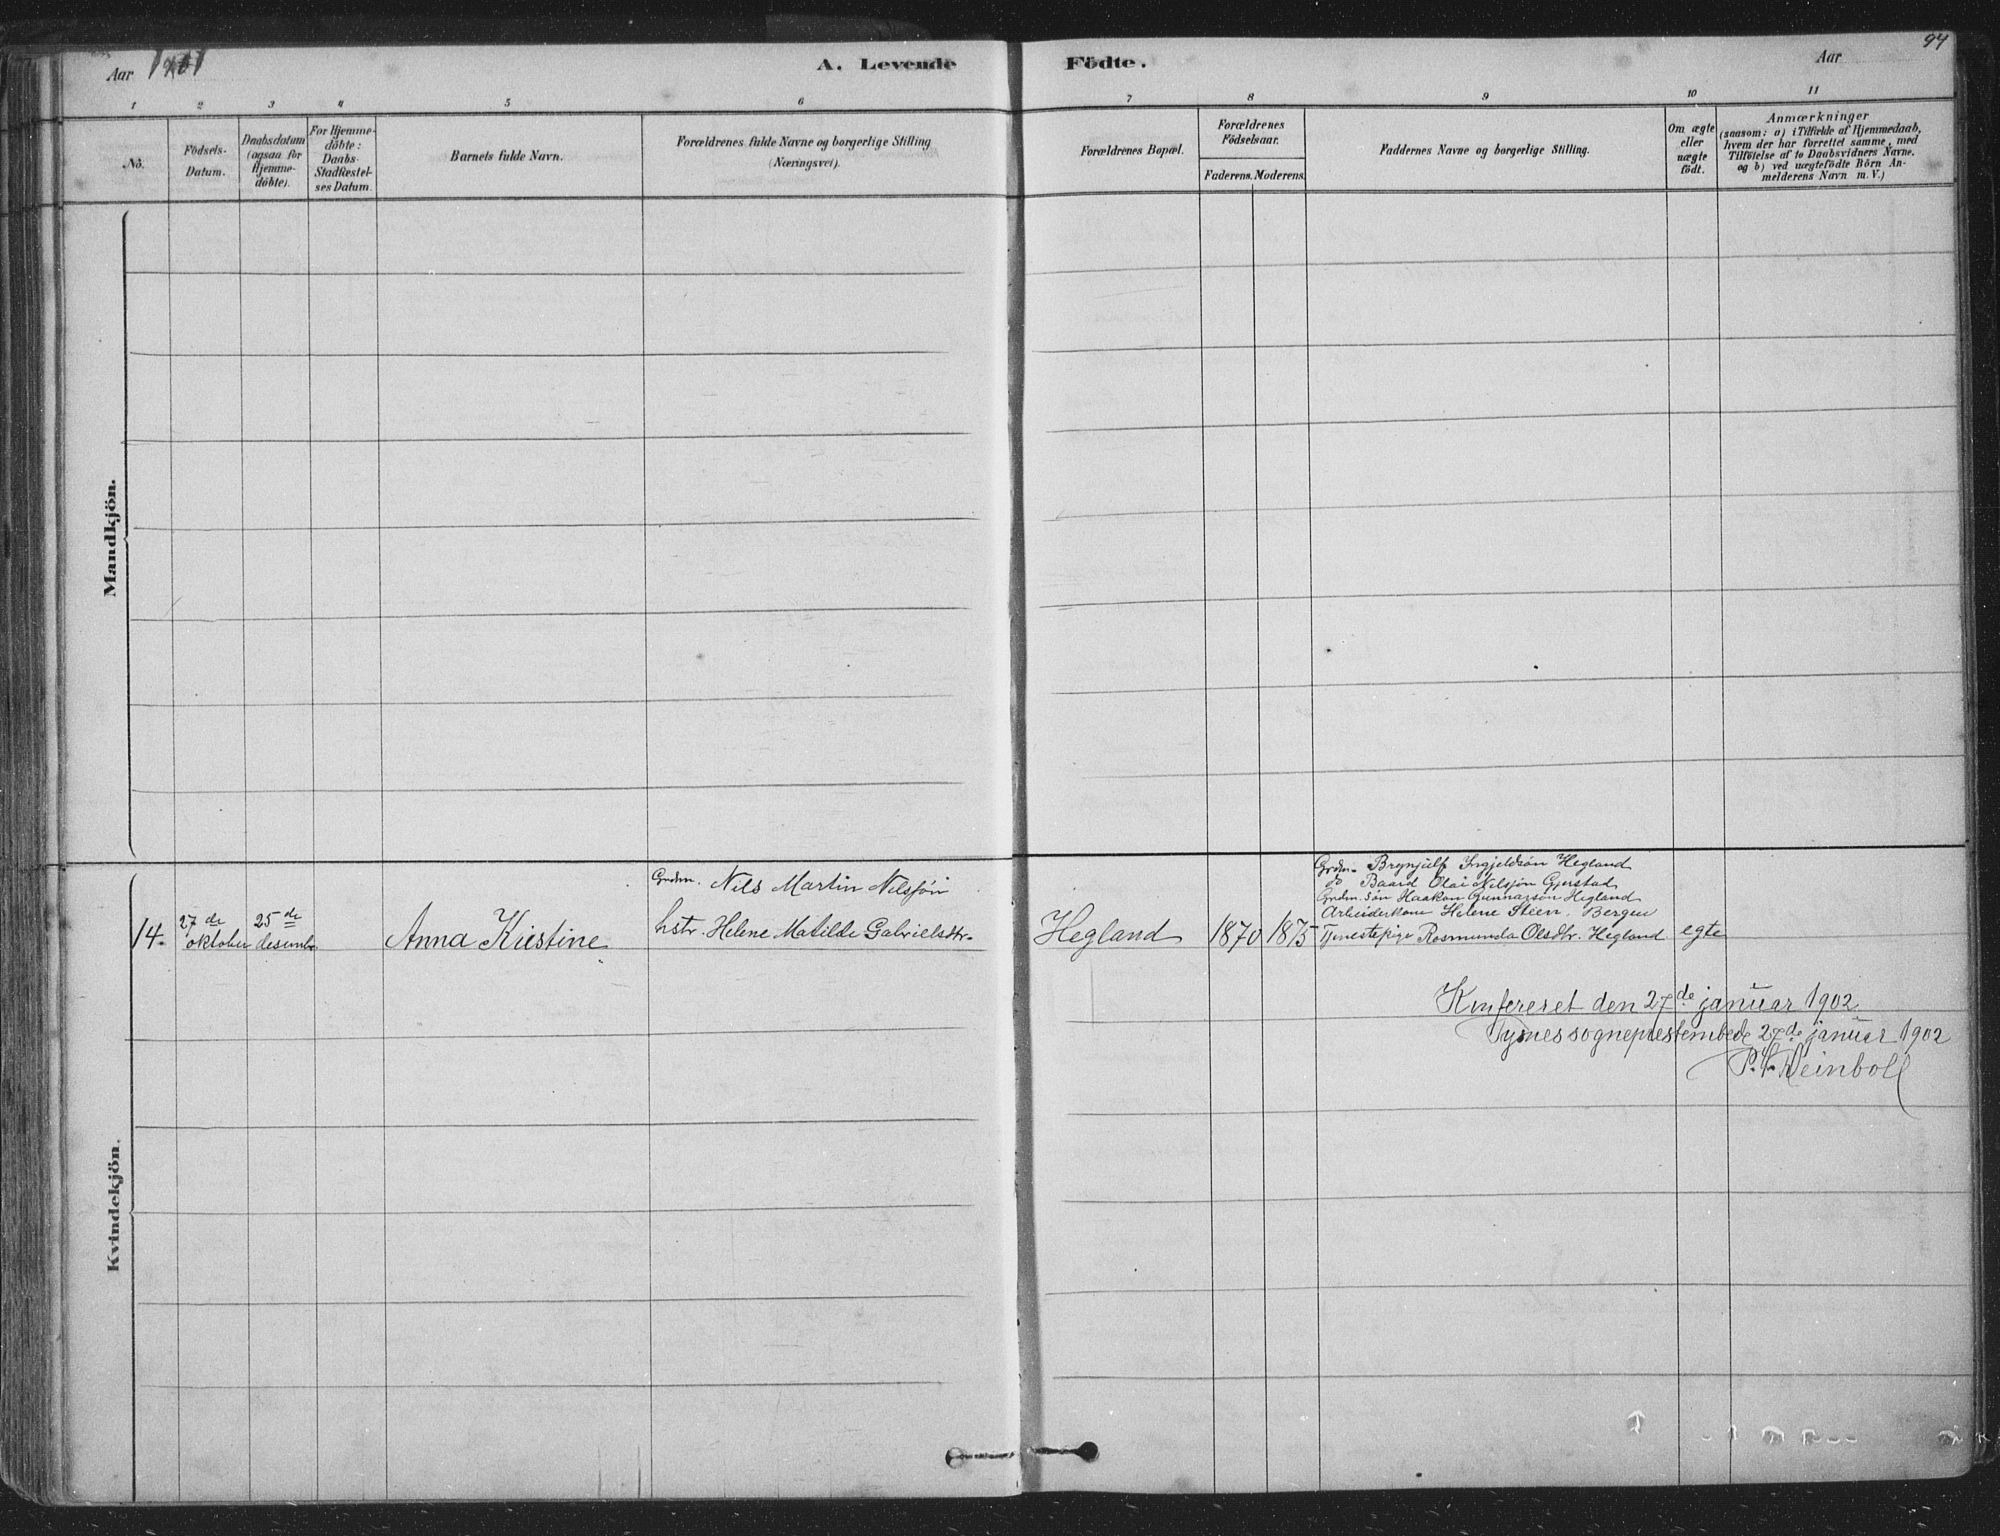 Aar 1901
A. Levende
Födte.
Aar
94
1 2 3 4 5 6 7 8 9 10 11
No.
Födsels-
Datum.
Daabsdatum
(ogsaa for
Hjemme-
döbte).
For Hjemme-
döbte:
Daabs-
Stadfæstel-
ses Datum.
Barnets fulde Navn.
Forældrenes fulde Navne og borgerlige Stilling
(Næringsvei).
Forældrenes Bopæl.
Forældrenes
Födselsaar.
Faderens. Moderens.
Faddernes Navne og borgerlige Stilling.
Om ægte
eller
uægte
födt.
Anmærkninger
(saasom: a) i Tilfælde af Hjemmedaab,
hvem der har forrettet samme, med
Tilföielse af to Daabsvidners Navne,
og b) ved uægtefödte Börn An-
melderens Navn m. V.)
Mandkjön.
Kvindekjön.
14.
27 de
oktober
25 de
desembr
Anna Kristine
Grdm. Nils Martin Nilssön
hstr. Helene Matilde Gabrielsdtr.
Hegland
1870
1875
Grdm. Brynjulf Ingjeldsön Hegland
do Baard Olai Nilssön Gjerstad
Grdm. sön Haakon Gunnarsön Hegland
Arbeiderkone Helene Steen, Bergen
Tjenestepige Rosmunda Olsdtr. Hegland
egte
Konfereret den 27de januar 1902
Tysnes sogneprestembede 27de januar 1902
Reinboll